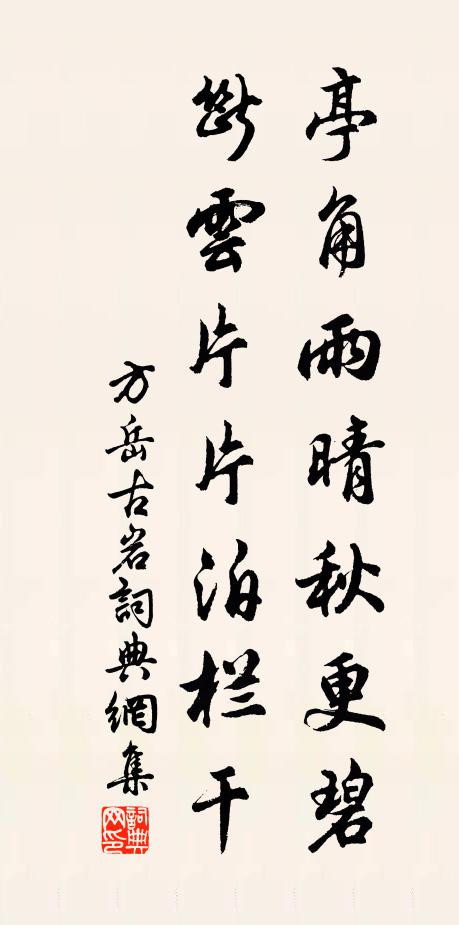 亭角雨晴秋更碧
斷雲片片泊栏干
方岳古岩詞典網集
詞典网印